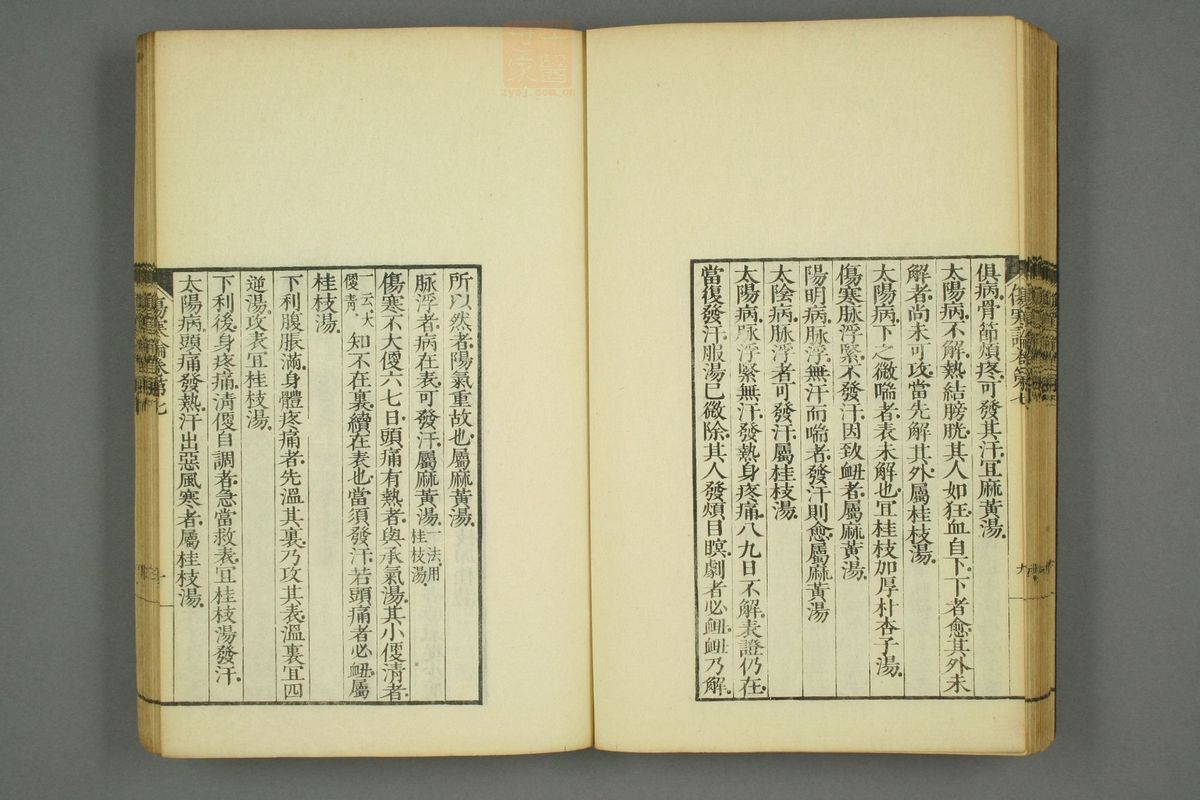 傷寒論卷第七
俱病骨節煩疼可發其汗宜麻黃湯
太陽病不解熱結膀胱其人如狂血自下下者愈其外未
解者尚未可攻當先解其外屬桂枝湯
太陽病下之微喘者表未解也宜桂枝加厚朴杏子湯
傷寒脉浮緊不發汗因致衄者屬麻黃湯
陽明病脉浮無汗而喘者發汗則愈屬麻黃湯
太陰病脉浮者可發汗屬桂枝湯
太陽病脉浮緊無汗發熱身疼痛八九日不解表證仍在
當復發汗服湯已微除其人發煩目瞑劇者必衄衄乃解
所以然者陽氣重故也屬麻黃湯
脉浮者病在表可發汗屬麻黃湯一法用桂枝湯
傷寒不大便六七日頭痛有熱者與承氣湯其小便清者
一云大便青知不在裏續在表也當須發汗若頭痛者必衄屬
桂枝湯
下利腹脹滿身體疼痛者先溫其裏乃攻其表溫裏宜四
逆湯攻表宜桂枝湯
下利後身疼痛清便自調者急當救表宜桂枝湯發汗
太陽病頭痛發熱汗出惡風寒者屬桂枝湯
傷寒論卷第七
zysj.com.cn